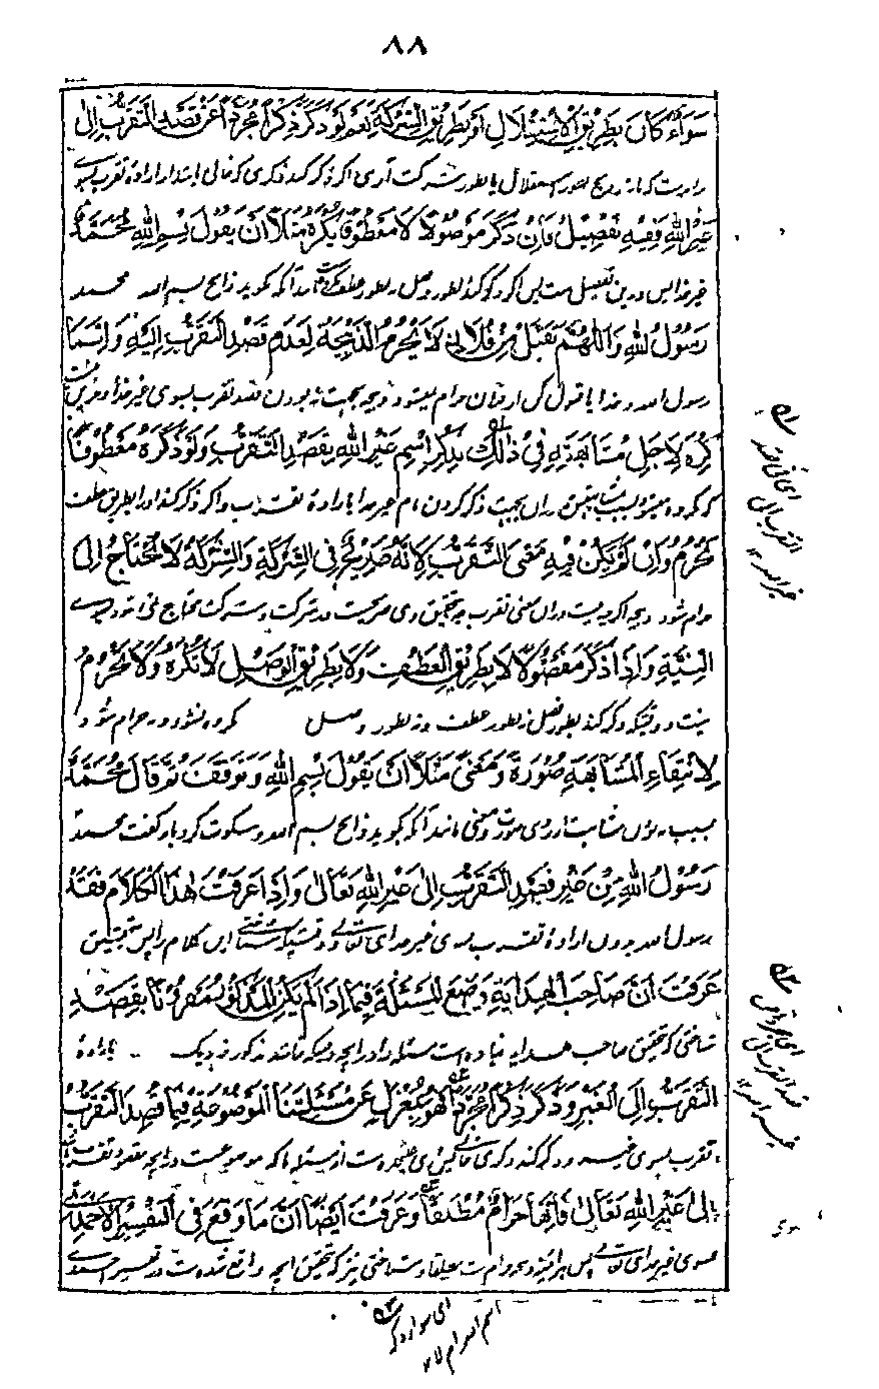 ٨٨
سَوَاءٌ كَانَ بِطَرِيْقِ الْاِسْتِقْلَالِ اَوْ بِطَرِيْقِ الشِّرْكَةِ نَعَمْ لَوْ ذَكَرَ ذِكْرًا مُجَرَّدًا عَنْ قَصْدِ التَّقَرُّبِ اِلٰى
بطور استقلال یا بطور شرکت آری اگر ذکر کند ذکری که خالی از اراده تقرب بسوی
غَيْرِ اللهِ فَفِيْهِ تَفْصِيْلٌ فَاِنْ ذَكَرَ مَوْصُوْلًا لَا مَعْطُوْفًا يُكْرَهُ مَثَلًا اَنْ يَقُوْلَ بِسْمِ اللهِ مُحَمَّدٌ
غیر خدا پس درین تفصیل ست پس اگر ذکر کند بطور وصل نه بطور عطف که گوید ذابح بسم الله محمد
رَسُوْلُ اللهِ وَاللّٰهُمَّ تَقَبَّلْ مِنْ فُلَانٍ لَا يَحْرُمُ الذَّبِيْحَةُ لِعَدَمِ قَصْدِ التَّقَرُّبِ اِلَيْهِ وَاِنَّمَا
رسول الله و خدایا قبول کن از فلان حرام نمیشود ذبیحه بجهت نه بودن قصد تقرب بسوی غیر خدا
كُرِهَ لِاَجَلِ مُشَابَهَتِهٖ فِيْ ذٰلِكَ بِذِكْرِ اسْمِ غَيْرِ اللهِ بِقَصْدِ التَّقَرُّبِ وَلَوْ ذَكَرَهٗ مَعْطُوْفًا
که مکروه میشود بسبب دران بجهت ذکر کردن نام غیر خدا باراده تقرب و اگر ذکر کند او را بطریق عطف
يَحْرُمُ وَاِنْ لَمْ يَكُنْ فِيْهِ مَعْنَى التَّقَرُّبِ لِاَنَّهٗ صَرِيْحٌ فِى الشِّرْكَةِ وَالشِّرْكَةُ لَا يَحْتَاجُ اِلٰى
حرام شود ذبیحه اگرچه نیست دران معنی تقرب به تحقیق وی صریحست در شرکت و شرکت محتاج نمی شود بسوی
النِّيَّةِ وَاِذَا ذَكَرَ مَفْصُوْلًا لَا بِطَرِيْقِ الْعَطْفِ وَلَا بِطَرِيْقِ الْوَصْلِ لَا يُكْرَهُ وَلَا يَحْرُمُ
نیت و وقتیکه ذکر کند بطور فصل نه بطور عطف و نه بطور وصل مکروه نشود و نه حرام شود
لِانْتِفَاءِ الْمُشَابَهَةِ صُوْرَةً وَمَعْنًى مَثَلًا اَنْ يَقُوْلَ بِسْمِ اللهِ وَتَوَقَّفَ ثُمَّ قَالَ مُحَمَّدٌ
بسبب نبودن مشابهت از روی صورت و معنی مانند آنکه بگوید ذابح بسم الله و سکوت کرد باز گفت محمد
رَسُوْلُ اللهِ مِنْ غَيْرِ قَصْدِ التَّقَرُّبِ اِلٰى غَيْرِ اللهِ تَعَالٰى وَاِذَا عَرَفْتَ هٰذَا الْكَلَامَ فَقَدْ
رسول الله بدون اراده تقرب بسوی غیر خدای تعالی و وقتیکه شناختی این کلام را پس بتحقیق
عَرَفْتَ اَنَّ صَاحِبَ الْهِدَايَةِ وَضَعَ الْمَسْئَلَةَ فِيْمَا اِذَا لَمْ يَكُنِ الْمَذْكُوْرُ مَقْرُوْنًا بِقَصْدِ
شناختی که تحقیق صاحب هدایه نهاده است مسئله را در انچه وقتیکه نباشد مذکور نزدیک باراده
التَّقَرُّبِ اِلَى الْغَيْرِ وَذَكَرَ ذِكْرًا مُجَرَّدًا فَهُوَ بِمَعْزِلٍ عَنْ مَسْئَلَتِنَا الْمَوْضُوْعَةِ فِيْمَا قُصِدَ التَّقَرُّبُ
تقرب بسوی غیر و ذکر کند ذکری خالی پس وی علیحده ست از مسئله ما که موضوعست در انچه مقصود تقرب
اِلٰى غَيْرِ اللهِ تَعَالٰى فَاِنَّهَا حَرَامٌ مُطْلَقًا وَعَرَفْتَ اَيْضًا اَنَّ مَا وَقَعَ فِى التَّفْسِيْرِ الْاَحْمَدِيِّ
بسوی غیر خدای تعالی پس حرام ست مطلقا و شناختی نیز که تحقیق انچه واقع شده ست در تفسیر احمدی
ای عن قصد
التقرب الی
غیر الله ١٢
ای مجردا عن
قصد التقرب الی
غیر الله ١٢